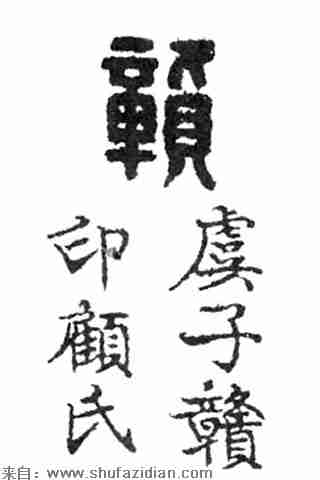 贛
虞子贛
印顧氏
来自：www.shufazidian.com